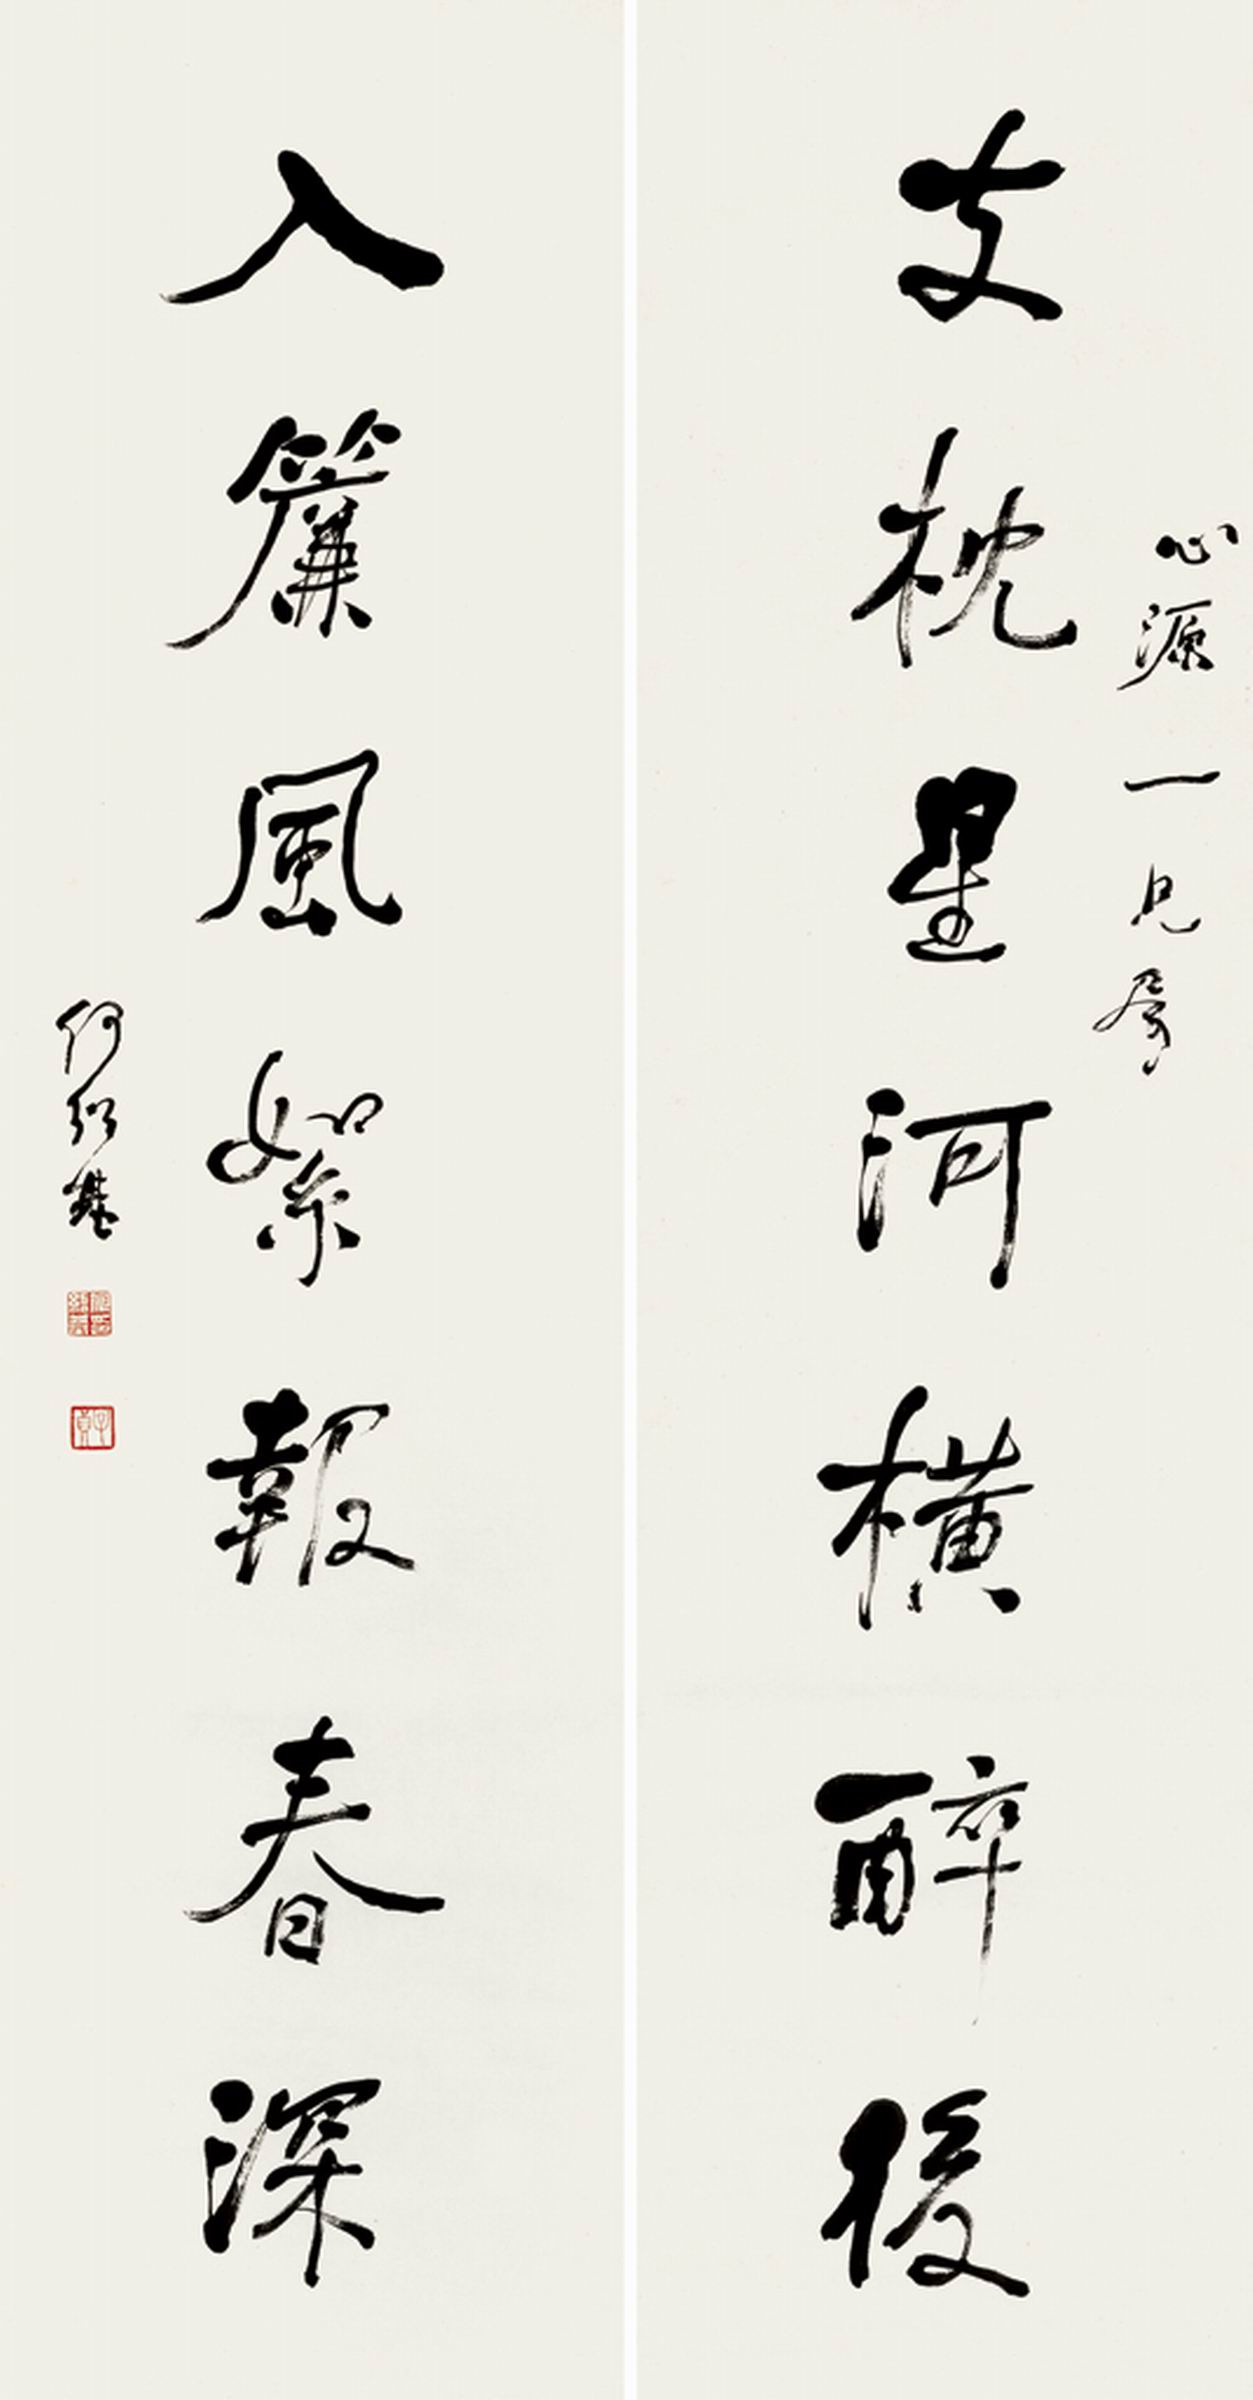 心源一兄属
支枕星河橫醉後
入簾風絮報春深
何紹基
子貞